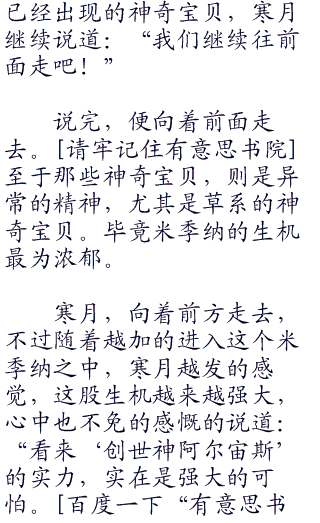 已经出现的神奇宝贝，寒月
继续说道：“我们继续往前
面走吧！”
说完，便向着前面走
去。[请牢记住有意思书院]
至于那些神奇宝贝，则是异
常的精神，尤其是草系的神
奇宝贝。毕竟米季纳的生机
最为浓郁。
寒月，向着前方走去，
不过随着越加的进入这个米
季纳之中，寒月越发的感
觉，这股生机越来越强大，
心中也不免的感慨的说道：
“看来‘创世神阿尔宙斯’
的实力，实在是强大的可
怕。[百度一下“有意思书